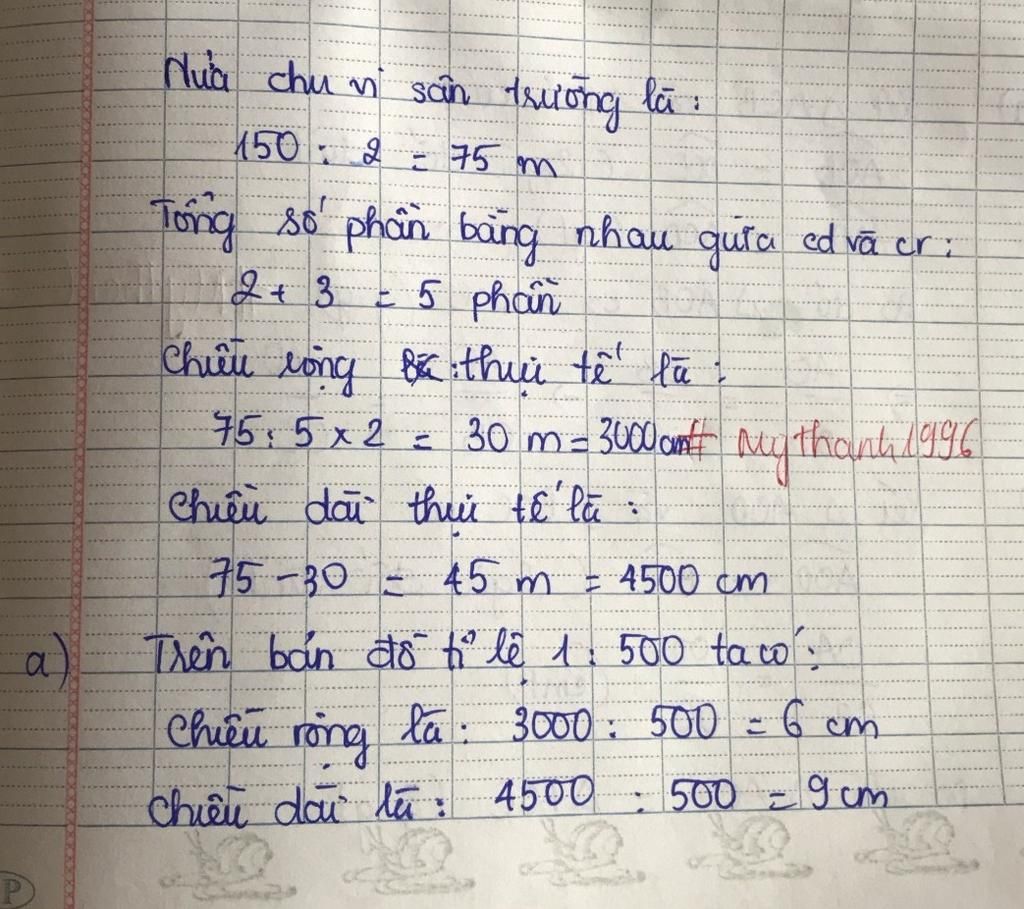 Nửa chu vi sân trường là :
150 : 2 = 75 m
Tổng số phần bằng nhau giữa cd và cr :
2 + 3 = 5 phần
Chiều rộng : thực tế là :
75 : 5 x 2 = 30 m = 3000 cm # mythanh1996
Chiều dài thực tế là :
75 - 30 = 45 m = 4500 cm
a) Trên bản đồ tỉ lệ 1 : 500 ta có :
Chiều rộng là : 3000 : 500 = 6 cm
Chiều dài là : 4500 : 500 = 9 cm
P